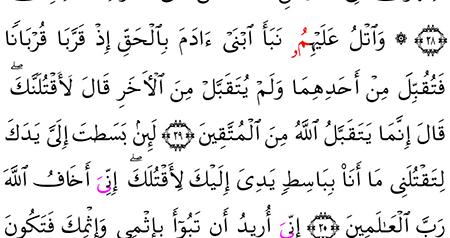 ۝٢٨ ۞ وَٱتْلُ عَلَيْهِمُۥ نَبَأَ ٱبْنَىْ ءَادَمَ بِٱلْحَقِّ إِذْ قَرَّبَا قُرْبَانًا
فَتُقُبِّلَ مِنْ أَحَدِهِمَا وَلَمْ يُتَقَبَّلْ مِنَ ٱلْأَخَرِ قَالَ لَأَقْتُلَنَّكَۖ
قَالَ إِنَّمَا يَتَقَبَّلُ ٱللَّهُ مِنَ ٱلْمُتَّقِينَ ۝٢٩ لَئِنۢ بَسَطتَ إِلَىَّ يَدَكَ
لِتَقْتُلَنِى مَا أَنَا۠ بِبَاسِطٍ يَدِىَ إِلَيْكَ لِأَقْتُلَكَۖ إِنِّىَ أَخَافُ ٱللَّهَ
رَبَّ ٱلْعَٰلَمِينَ ۝٣٠ إِنِّىَ أُرِيدُ أَن تَبُوٓأَ بِإِثْمِى وَإِثْمِكَ فَتَكُونَ